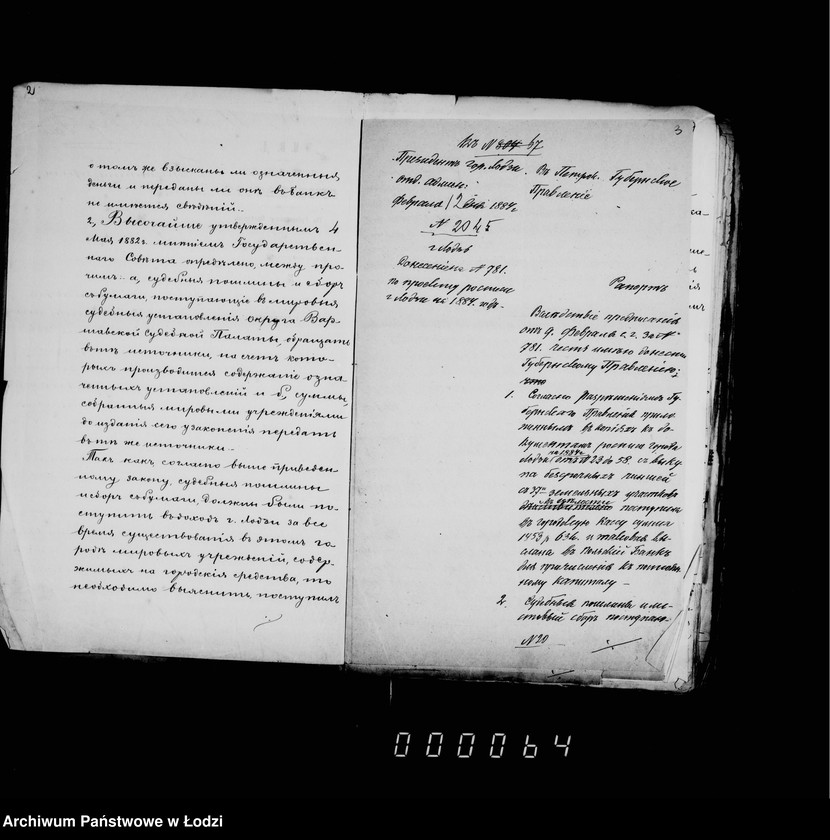 2
о томъ же взысканы ли означенныя
деньги и переданы ли онѣ въ банкъ
не имѣется свѣдѣній.
2, Высочайше утвержденнымъ 4
Мая 1882 г. мнѣніемъ Государствен-
наго Совѣта опредѣлено, между про-
чимъ: а, судебныя пошлины и сборъ
съ бумаги, поступающіе въ мировыя
судебныя установленія округа Вар-
шавской судебной Палаты, обращать
въ тѣ источники, на счетъ кото-
рыхъ производится содержаніе озна-
ченныхъ установленій и б, суммы,
собранныя мировыми учрежденіями
до изданія сего узаконенія передать
въ тѣ же источники.
Такъ какъ согласно выше приведен-
ному закону, судебныя пошлины
и сборъ съ бумаги, должны были по-
ступить въ доходъ г. Лодзи за все
время существованія въ этомъ го-
родѣ мировыхъ учрежденій, содер-
жимыхъ на городскія средства, то
необходимо выяснить, поступилъ
3
къ № 67
Президентъ гор. Лодзи.
отд. админ:
Февраля 1884 г.
№ 2045
г. Лодзь
Въ Петрок. Губернское
Правленіе
Донесеніе на № 781.
по проекту росписи
г. Лодзи на 1884 годъ.
Рапортъ
Вслѣдствіе предписанія
отъ 9 Февраля с. г. за №
781. честь имѣю донести
Губернскому Правленію,
что
1. Согласно Разрѣшеніямъ Гу-
бернскаго Правленія прило-
женнымъ въ копіяхъ къ до-
кументамъ росписи города
Лодзи на 1884 г. отъ № 23 до 58. съ выку-
па безсрочныхъ чиншей
съ 37 земельныхъ участковъ
поступила
въ городскую кассу сумма
1453 р. 63 к. и таковая вы-
слана въ Польскій Банкъ
для причисленія къ
ному капиталу —
2. Судебныя пошлины и
сборъ поступаю-
№ 20
000064
Archiwum Państwowe w Łodzi